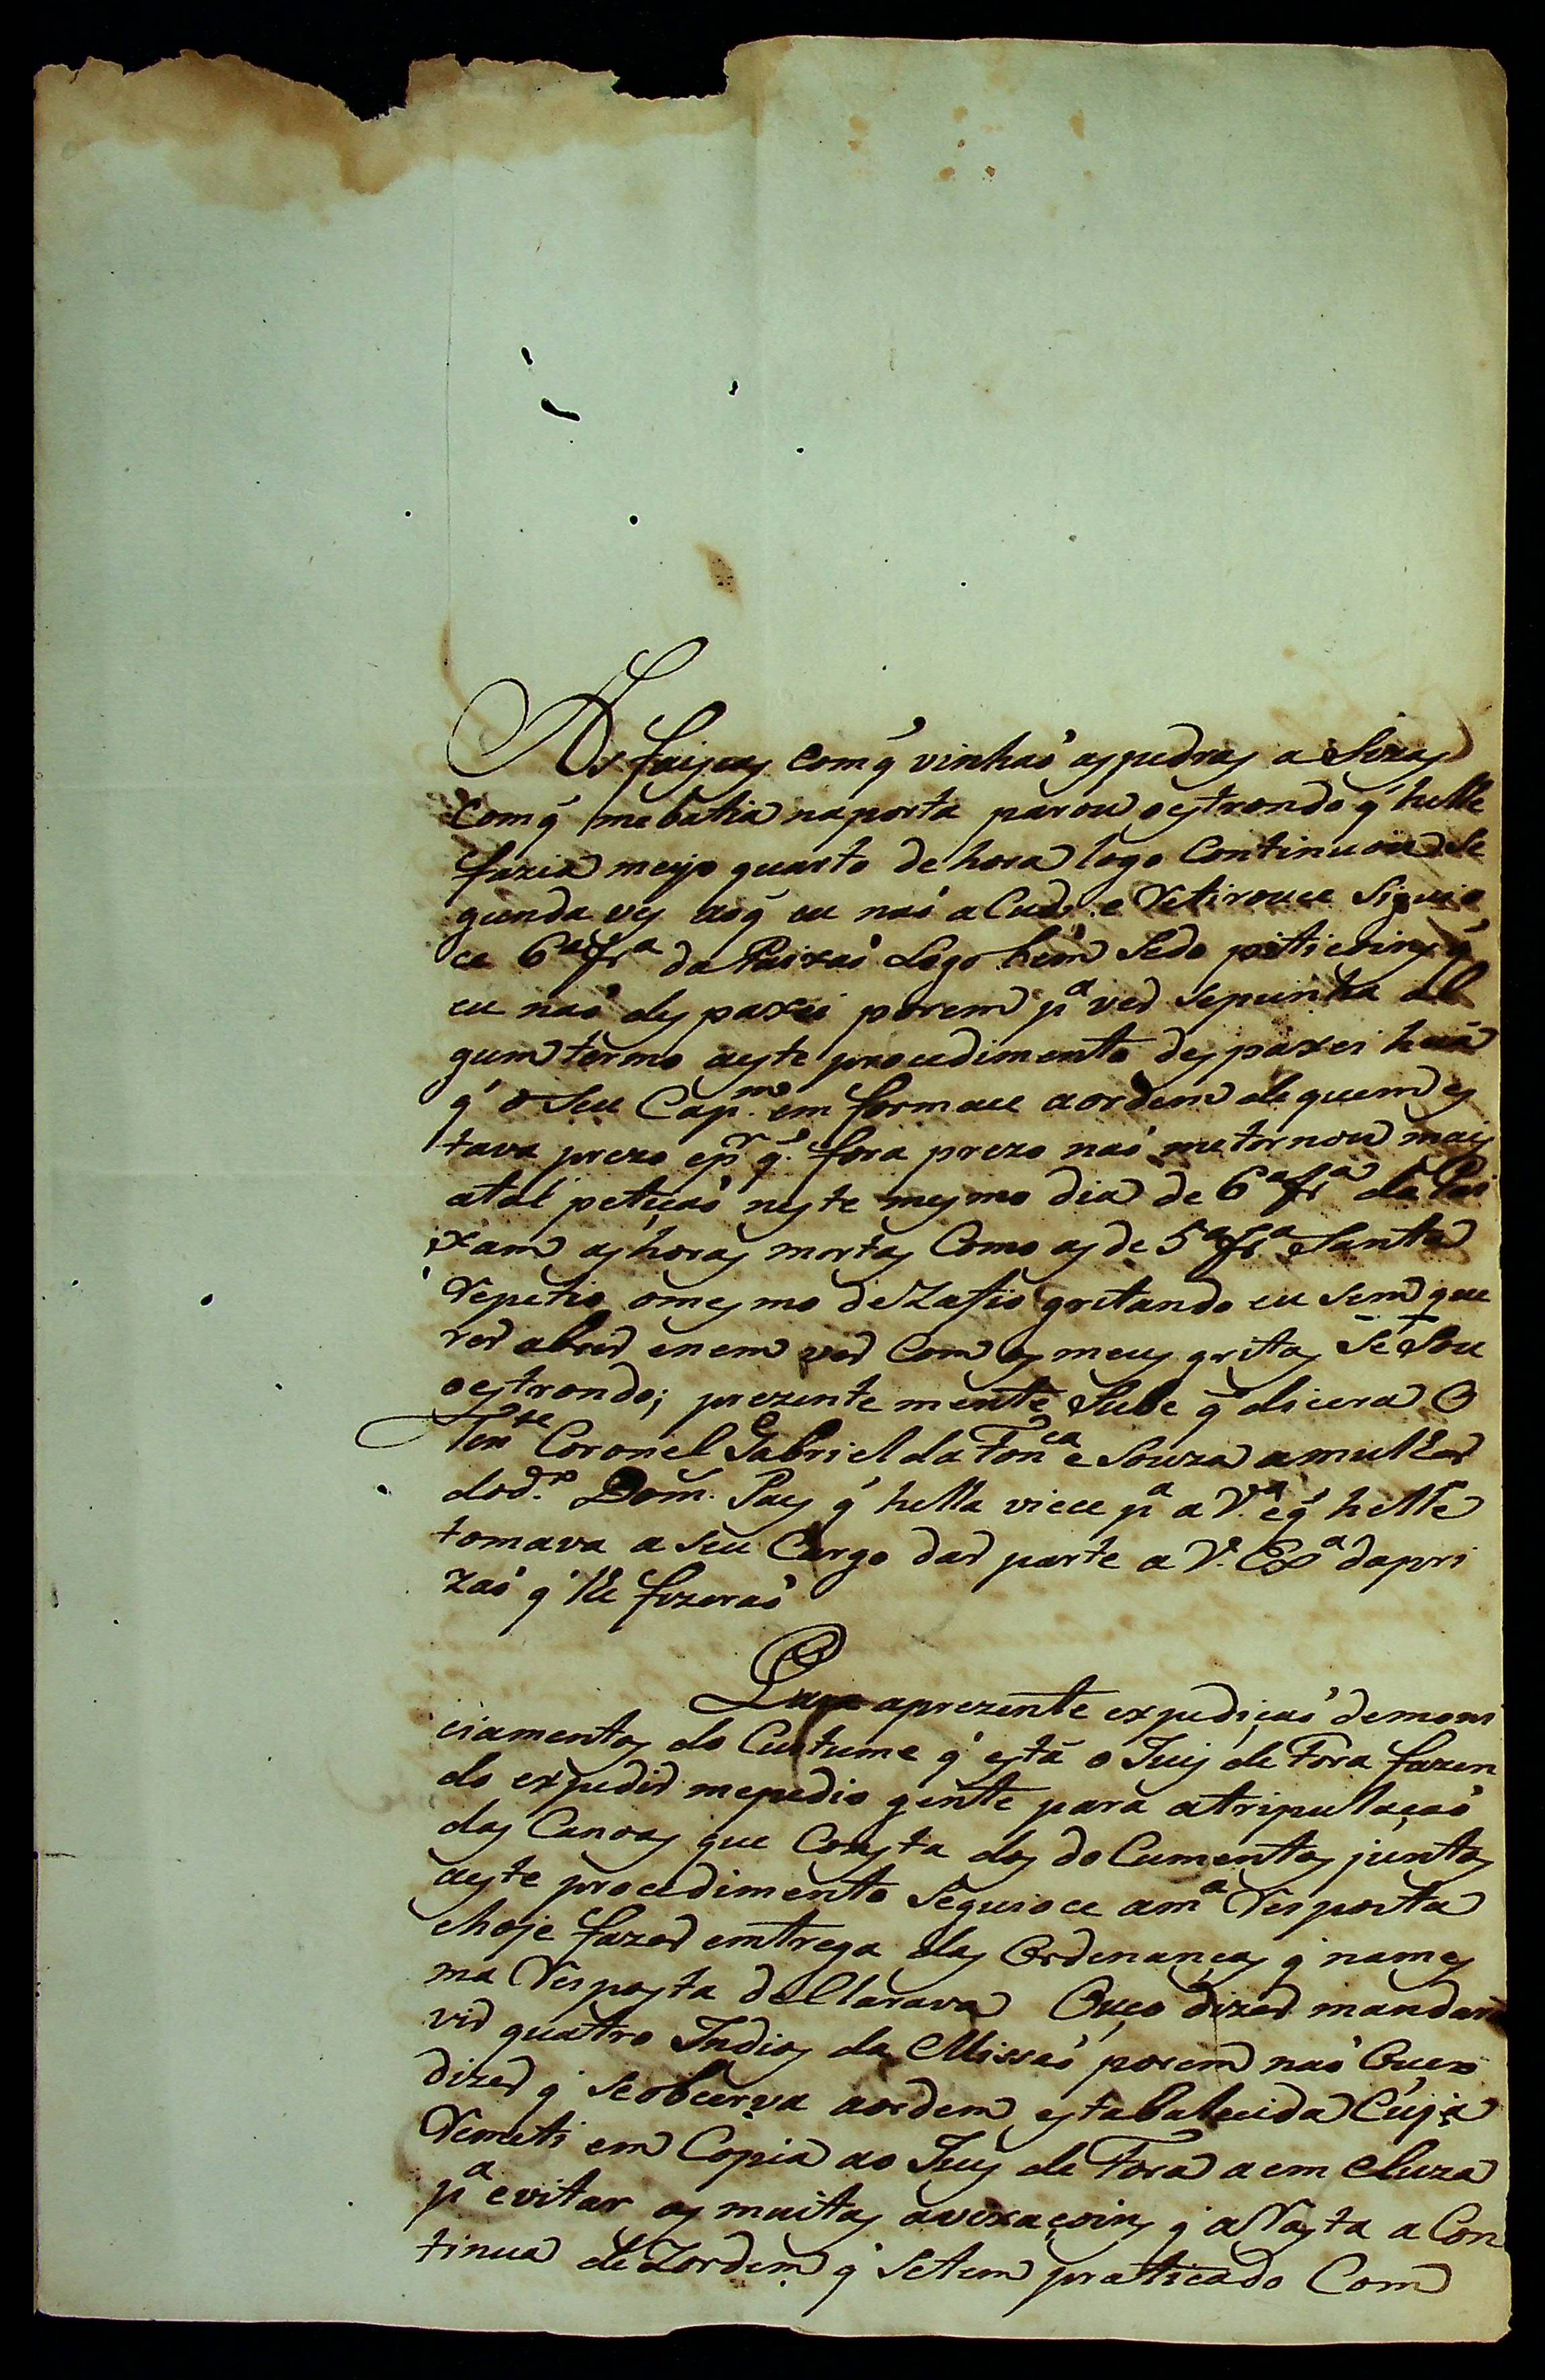 As faiscas com q̃ vinhaõ as pedras a Luzas
Com q̃ me batia na porta parou o estrondo q̃ helle
fazia meyo quarto de hora logo Continuou de Se
gunda ves ao q̃ eu naõ a Cudi e Retirouce Siguio
ce 6ª frª da Paixaõ Logo bem Sedo petiçoins q̃
eu naõ despaxei porem pª ver Se punha al
gum termo a este procedimento despaxei huã
q̃ o Seu Cap.m em formace a ordem de quem es
tava prezo e pr q̃ fora prezo naõ me tornou mais
a tal petiçaõ neste mesmo dia de 6ª frª da Pai
xam as horas mortas Como as de 5ª frª Santa
Repetio o mesmo deZafio gritando eu sem que
rer abrir e nem ver Com os meus gritos SeSou
o estrondo; prezente mente Sube q̃ dicera O
Tente Coronel Gabriel da Fonca e Souza a mulher
do d.º Dom. Paes q̃ hella viece pª a V.ª e q̃ helle
tomava a seu Cargo dar parte a V. Exª da pri
zaõ q̃ lhe fizeraõ
Para a prezente expediçaõ de moni
ciamentos do Custume q̃ está o Juis de Fora fazen
do expedir me pedio gente para a tripulaçaõ
das Canoas que Consta dos doCumentos juntos
a este procedimento Seguioce a mª Resposta
e hoje fazer emtrega das Ordenanças q̃ na mes
ma Resposta deClarava Ouço dizer mandara
vir quatro Indios da Missaõ porem naõ Ouço
dizer q̃ Se obcerva a ordem estabalecida Cuja
Remeti em Copia ao Juis de Fora a em Cluza
pª evitar as muitas avexaçoins q̃ aRasta a Con
tinua deZordem q̃ Se tem praticado Com